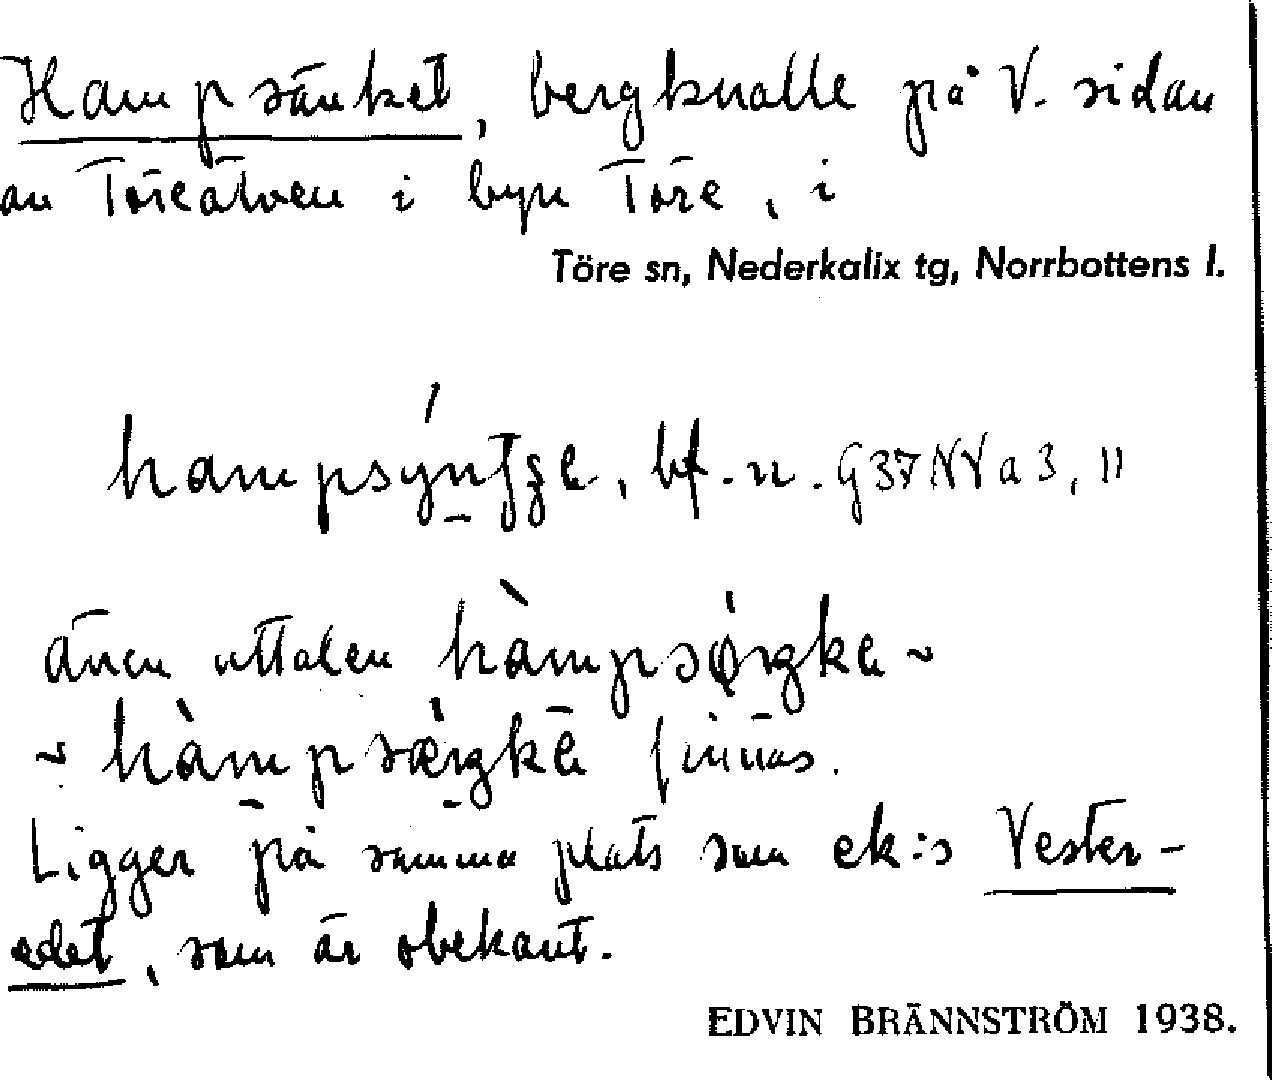 Hampsänket, bergknalle på V. sidan
av Töreälven i byn Töre, i
Töre sn, Nederkalix tg, Norrbottens l.
bf. n. G37NVa3, 11
även uttalen hàmpsøŋka ~
~ hàmpsæŋka finnas.
Ligger på samma plats som ek:s Vester-
edet, som är obekant.
EDVIN BRÄNNSTRÖM 1938.